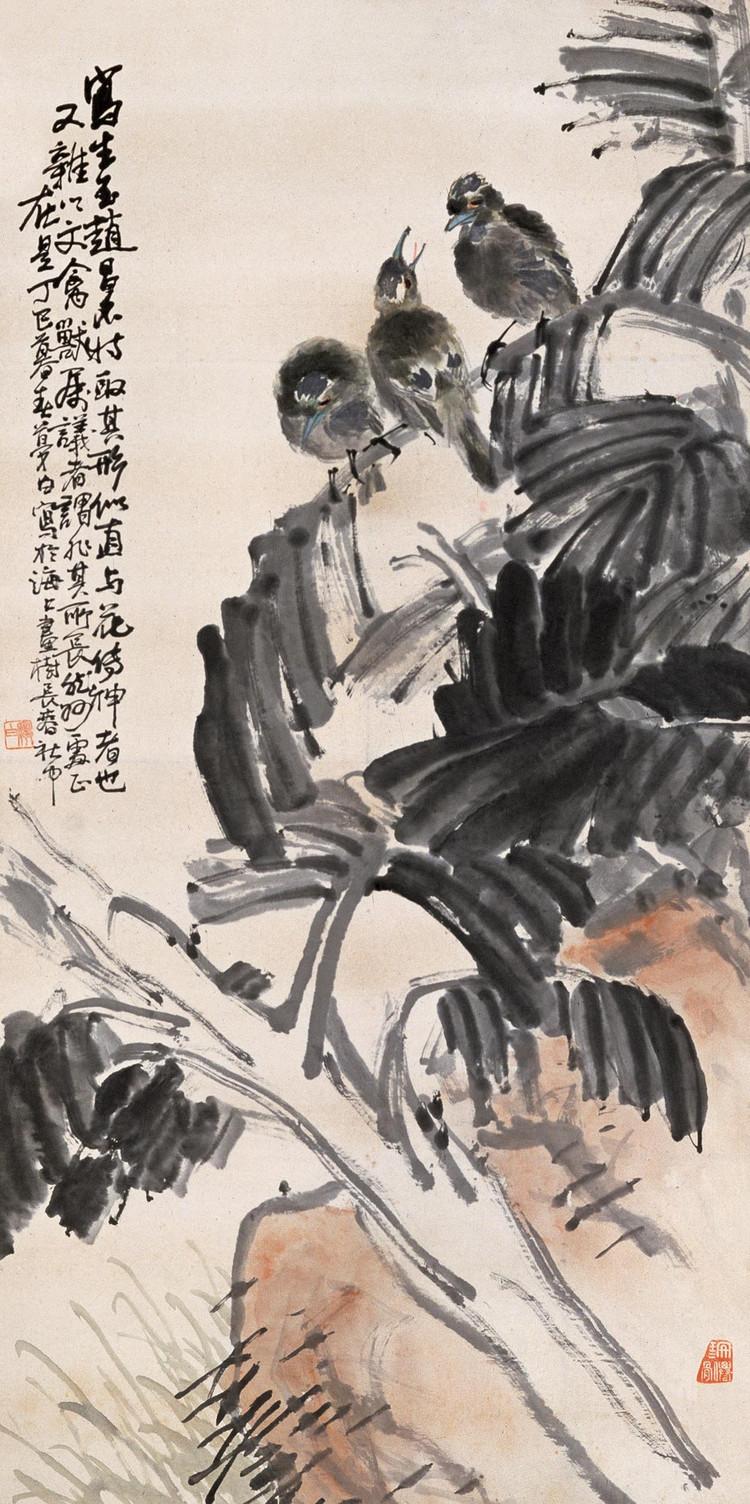 寫生至趙昌不特取其形似直與花傳神者也
又雜以文禽獸兔議者謂非其所長然妙處正
在是丁巳暮春夢白寫於海上畫樹長春社中